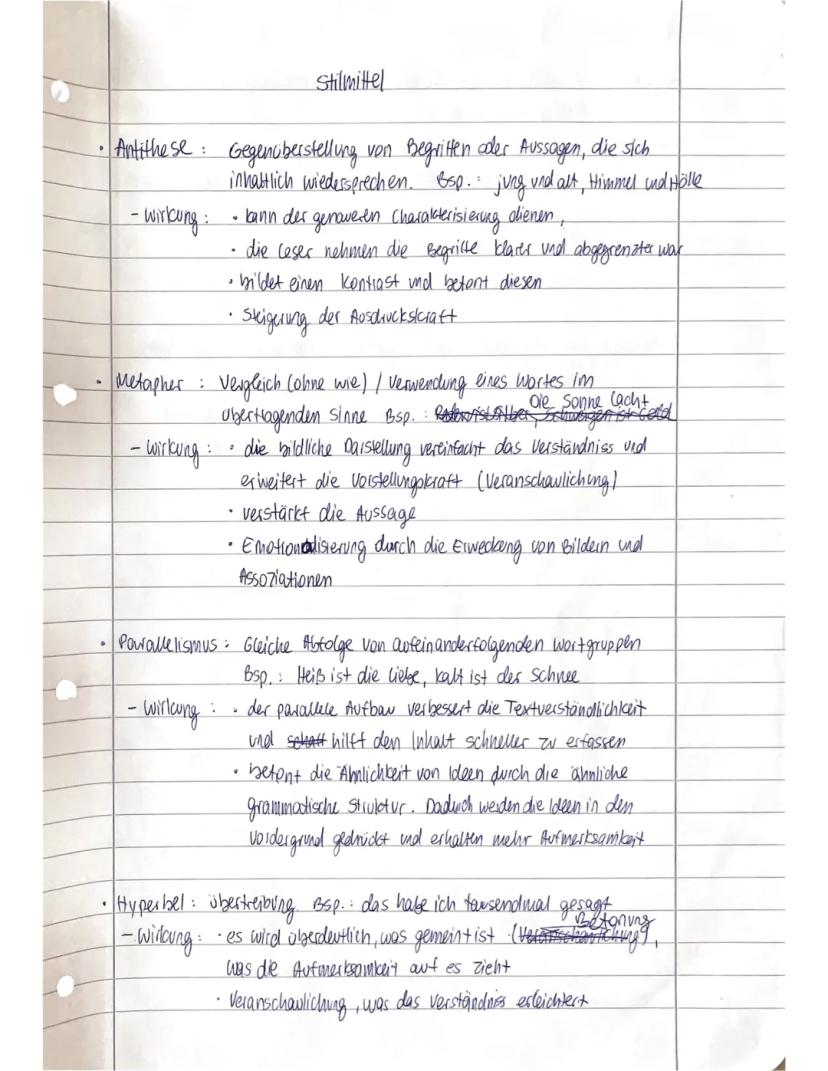 Stilmittel
• Antithese : Gegenüberstellung von Begriffen oder Aussagen, die sich
inhaltlich wiedersprechen. Bsp. : jung und alt, Himmel und Hölle
- Wirkung : • kann der genaueren Charakterisierung dienen,
• die Leser nehmen die Begriffe klarer und abgegrenzter war
• bildet einen Kontrast und betont diesen
• Steigerung der Ausdruckskraft
• Metapher : Vergleich (ohne wie) / Verwendung eines Wortes im
Die Sonne lacht
übertragenden Sinne Bsp. : Reden ist Silber, Schweigen ist Gold
- Wirkung : • die bildliche Darstellung vereinfacht das Verständniss und
erweitert die Vorstellungskraft (Veranschaulichung)
• verstärkt die Aussage
• Emotionalisierung durch die Erweckung von Bildern und
Assoziationen
• Parallelismus : Gleiche Abfolge von aufeinanderfolgenden Wortgruppen
Bsp. : Heiß ist die Liebe, kalt ist der Schnee
- Wirkung : • der parallele Aufbau verbessert die Textverständlichkeit
und schaff hilft den Inhalt schneller zu erfassen
• betont die Ähnlichkeit von Ideen durch die ähnliche
grammatische Struktur. Dadurch werden die Ideen in den
Vordergrund gedrückt und erhalten mehr Aufmerksamkeit
• Hyperbel : übertreibung. Bsp. : das habe ich tausendmal gesagt
Betonung
- Wirkung : • es wird überdeutlich, was gemeint ist (Veranschaulichung),
was die Aufmerksamkeit auf es zieht
• Veranschaulichung, was das Verständnis erleichtert